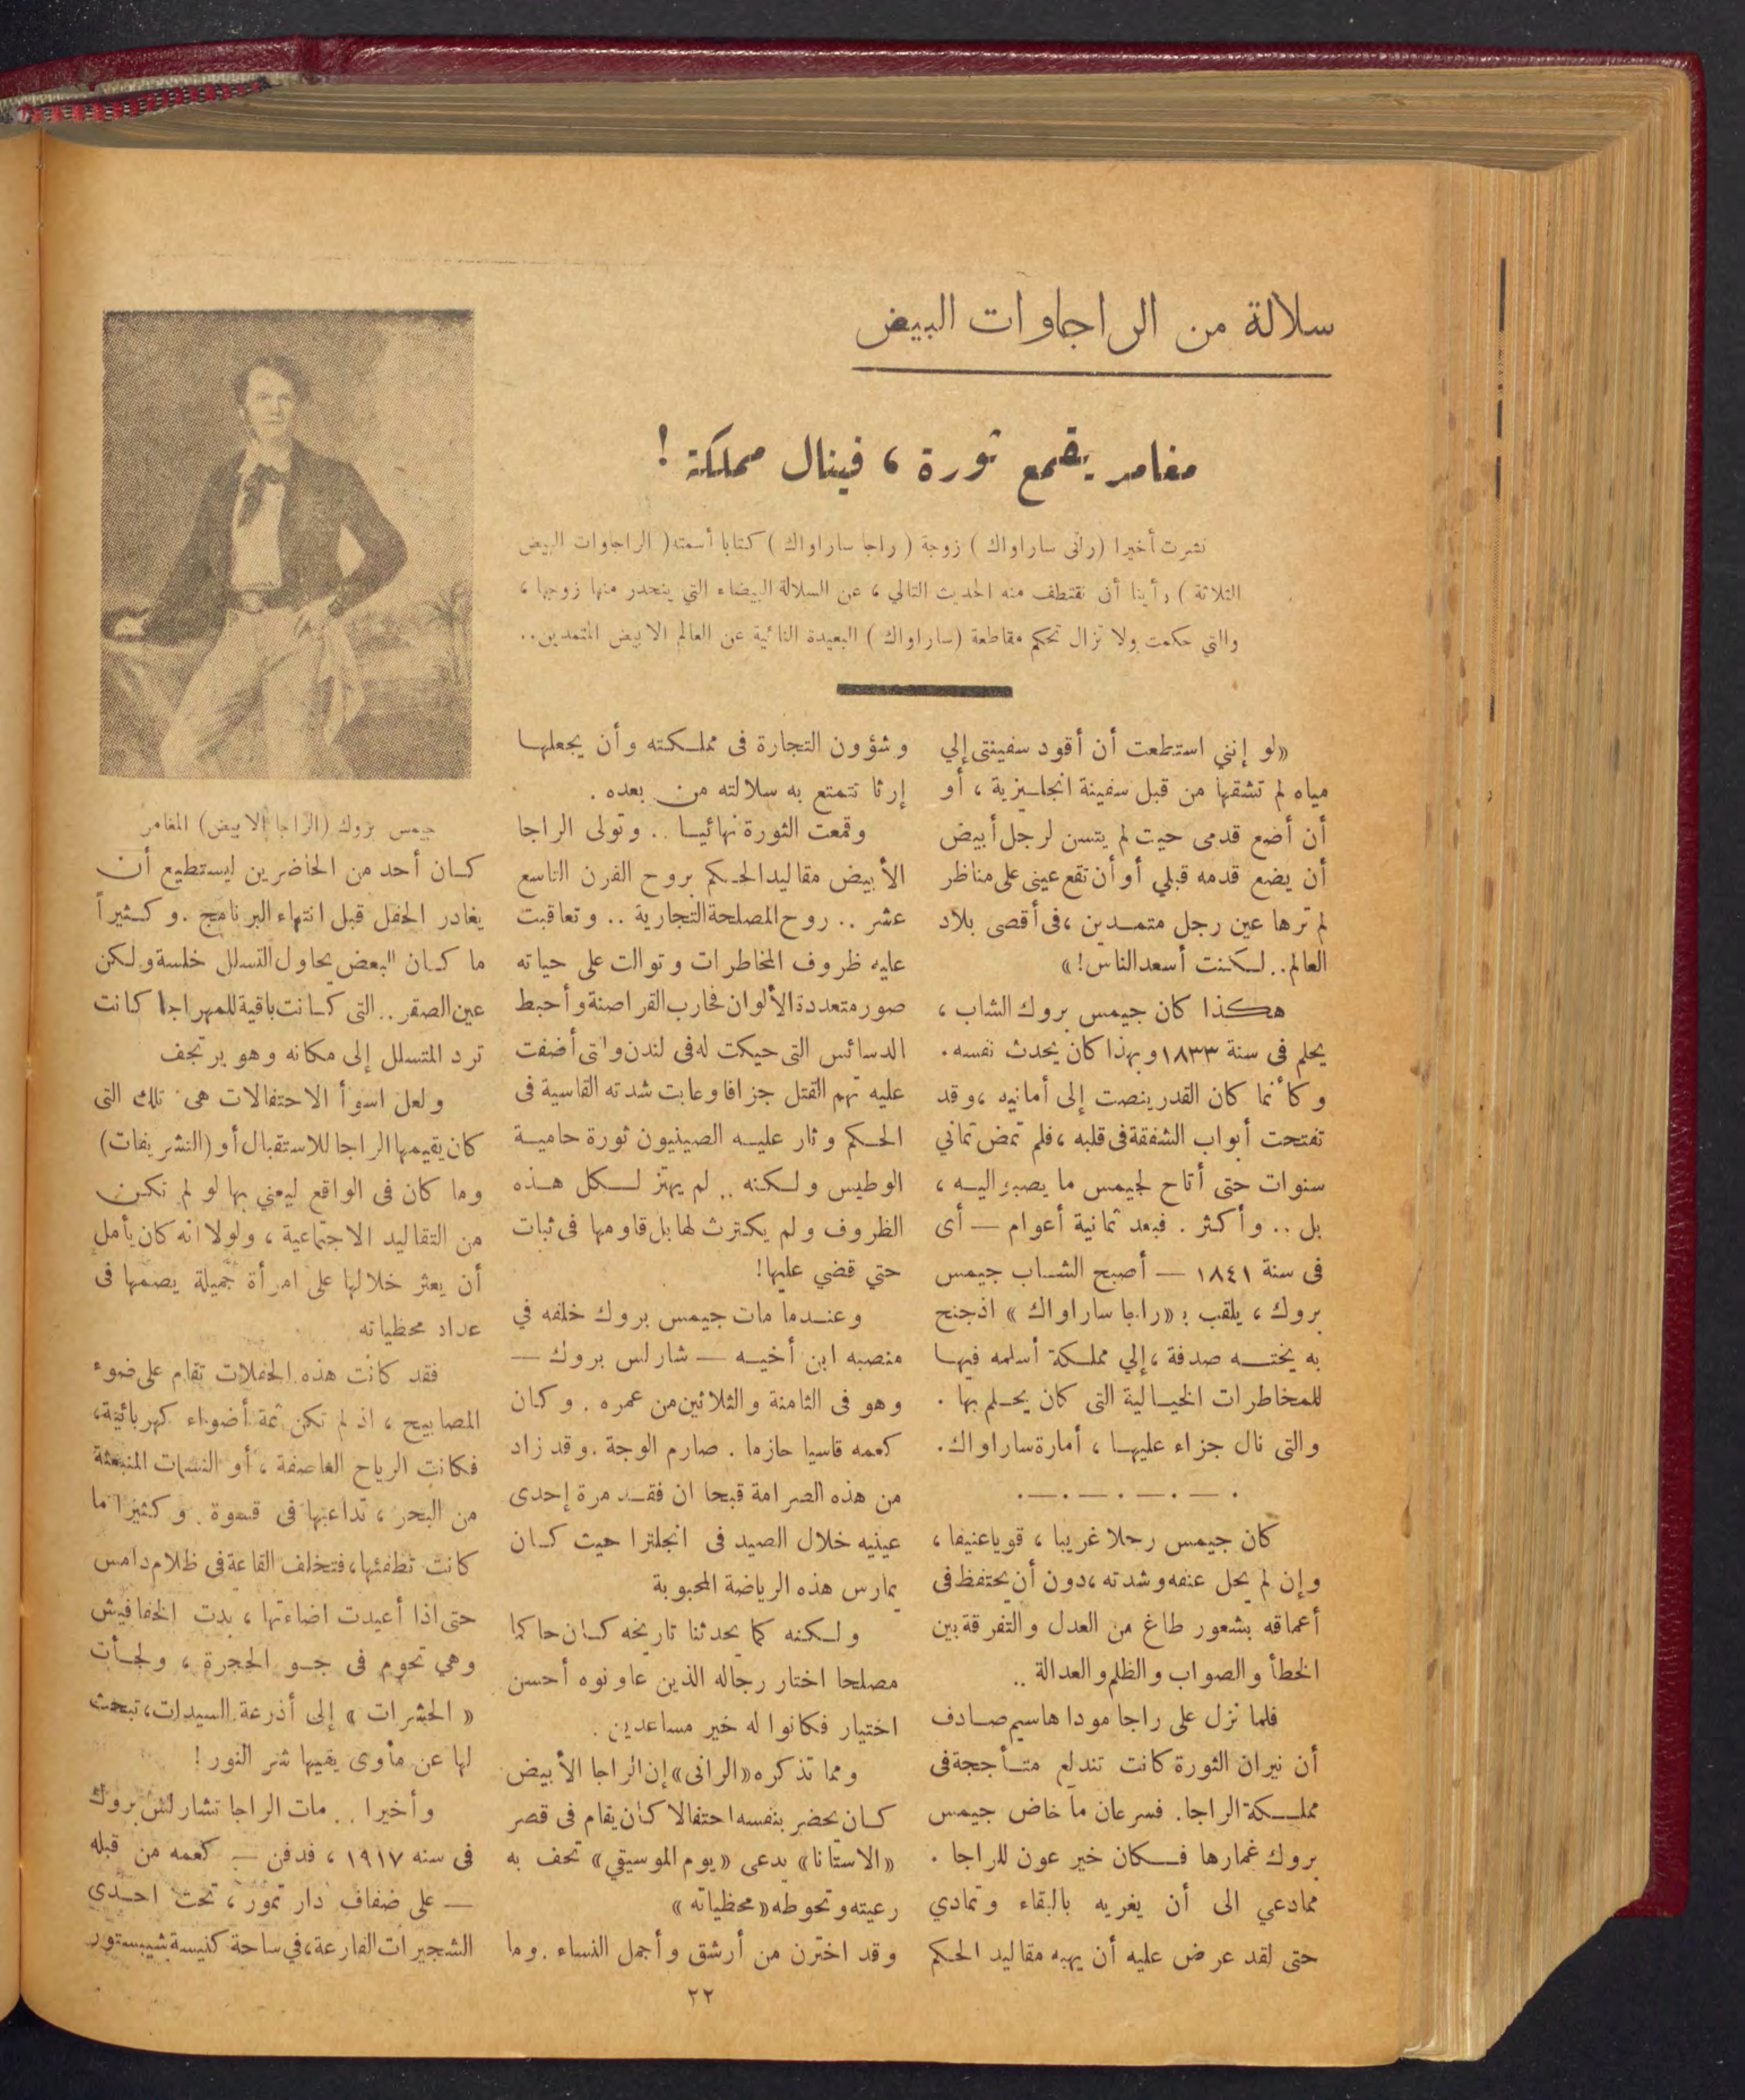 سلالة من الراجاوات البيض
مغامر يقمع ثورة ، فينال مملكة !
نشرت أخيرا ( رانى ساراواك ) زوجة ( راجا ساراواك ) كتابا أسمته ( الراجاوات البيض
الثلاثة ) رأينا أن نقتطف منه الحديث التالي ، عن السلالة البيضاء التي ينحدر منها زوجها ،
والتي حكمت ولا تزال تحكم مقاطعة (ساراواك ) البعيدة النائية عن العالم الابيض المتمدين ..
« لو إنني استطعت أن أقود سفينتى إلي
مياه لم تشقها من قبل سفينة انجليزية ، أو
أن أضع قدمى حيث لم يتسن لرجل أبيض
أن يضع قدمه قبلي أو أن تقع عينى على مناظر
لم ترها عين رجل متمدين ، فى أقصى بلاد
العالم .. لكنت أسعد الناس ! »
هكذا كان جيمس بروك الشاب ،
يحلم فى سنة ١٨٣٣ وبهذا كان يحدث نفسه .
وكأنما كان القدر ينصت إلى أمانيه ، وقد
تفتحت أبواب الشفقة فى قلبه ، فلم تمض ثماني
سنوات حتى أتاح لجيمس ما يصبو اليه ،
بل .. وأكثر . فبعد ثمانية أعوام — أى
فى سنة ١٨٤١ — أصبح الشاب جيمس
بروك ، يلقب بـ « راجا ساراواك » اذ جنح
به يخته صدفة ، إلي مملكة أسلمه فيها
للمخاطرات الخيالية التى كان يحلم بها .
والتى نال جزاء عليها ، أمارة ساراواك .
. — . — . — . — .
كان جيمس رجلا غريبا ، قويا عنيفا ،
وإن لم يحل عنفه وشدته ، دون أن يحتفظ فى
أعماقه بشعور طاغ من العدل والتفرقة بين
الخطأ والصواب والظلم والعدالة ..
فلما نزل على راجا مودا هاسيم صادف
أن نيران الثورة كانت تندلع متأججة فى
مملكة الراجا . فسرعان ما خاض جيمس
بروك غمارها فكان خير عون للراجا .
ممادعي الى أن يغريه بالبقاء وتمادي
حتى لقد عرض عليه أن يهبه مقاليد الحكم
وشؤون التجارة فى مملكته وأن يجعلها
إرثا تتمتع به سلالته من بعده .
وقمعت الثورة نهائيا .. وتولى الراجا
الأبيض مقاليد الحكم بروح القرن التاسع
عشر .. روح المصلحة التجارية .. وتعاقبت
عليه ظروف المخاطرات وتوالت على حياته
صور متعددة الألوان فحارب القراصنة وأحبط
الدسائس التى حيكت له فى لندن والتى أضفت
عليه تهم القتل جزافا وعابت شدته القاسية فى
الحكم وثار عليه الصينيون ثورة حامية
الوطيس ولكنه .. لم يهتز لكل هذه
الظروف ولم يكترث لها بل قاومها فى ثبات
حتي قضي عليها !
وعندما مات جيمس بروك خلفه في
منصبه ابن أخيه — شارلس بروك —
وهو فى الثامنة والثلاثين من عمره . وكان
كعمه قاسيا حازما . صارم الوجة . وقد زاد
من هذه الصرامة قبحا ان فقد مرة إحدى
عينيه خلال الصيد فى انجلترا حيث كان
يمارس هذه الرياضة المحبوبة
ولكنه كما يحدثنا تاريخه كان حاكما
مصلحا اختار رجاله الذين عاونوه أحسن
اختيار فكانوا له خير مساعدين .
ومما تذكره « الرانى » إن الراجا الأبيض
كان يحضر بنفسه احتفالا كان يقام فى قصر
« الاستانا » يدعى « يوم الموسيقي » تحف به
رعيته وتحوطه « محظياته »
وقد اخترن من أرشق وأجمل النساء . وما
جيمس بروك (الراجا الابيض) المغامر
كان أحد من الحاضرين ليستطيع أن
يغادر الحفل قبل انتهاء البرنامج . وكثيراً
ما كان البعض يحاول التسلل خلسة ولكن
عين الصقر .. التى كانت باقية للمهراجا كانت
ترد المتسلل إلى مكانه وهو يرتجف
ولعل اسوأ الاحتفالات هى تلك التى
كان يقيمها الراجا للاستقبال أو (التشريفات)
وما كان فى الواقع ليعني بها لو لم تكن
من التقاليد الاجتماعية ، ولولا انه كان يأمل
أن يعثر خلالها على امرأة جميلة يضمها فى
عداد محظياته
فقد كانت هذه الحفلات تقام على ضوء
المصابيح ، اذ لم تكن ثمة أضواء كهربائية ،
فكانت الرياح العاصفة ، أو النسمات المنبعثة
من البحر ، تداعبها فى قسوة . وكثيرا ما
كانت تطفئها ، فتخلف القاعة فى ظلام دامس
حتى اذا أعيدت اضاءتها ، بدت الخفافيش
وهي تحوم فى جو الحجرة ، ولجأت
« الحشرات » إلى أذرعة السيدات ، تبحث
لها عن مأوى يقيها شر النور !
وأخيرا .. مات الراجا تشارلس بروك
فى سنه ١٩١٧ ، فدفن — كعمه من قبله
— على ضفاف دار تمور ، تحت احدى
الشجيرات الفارعة ، في ساحة كنيسة شيبستور
٢٢